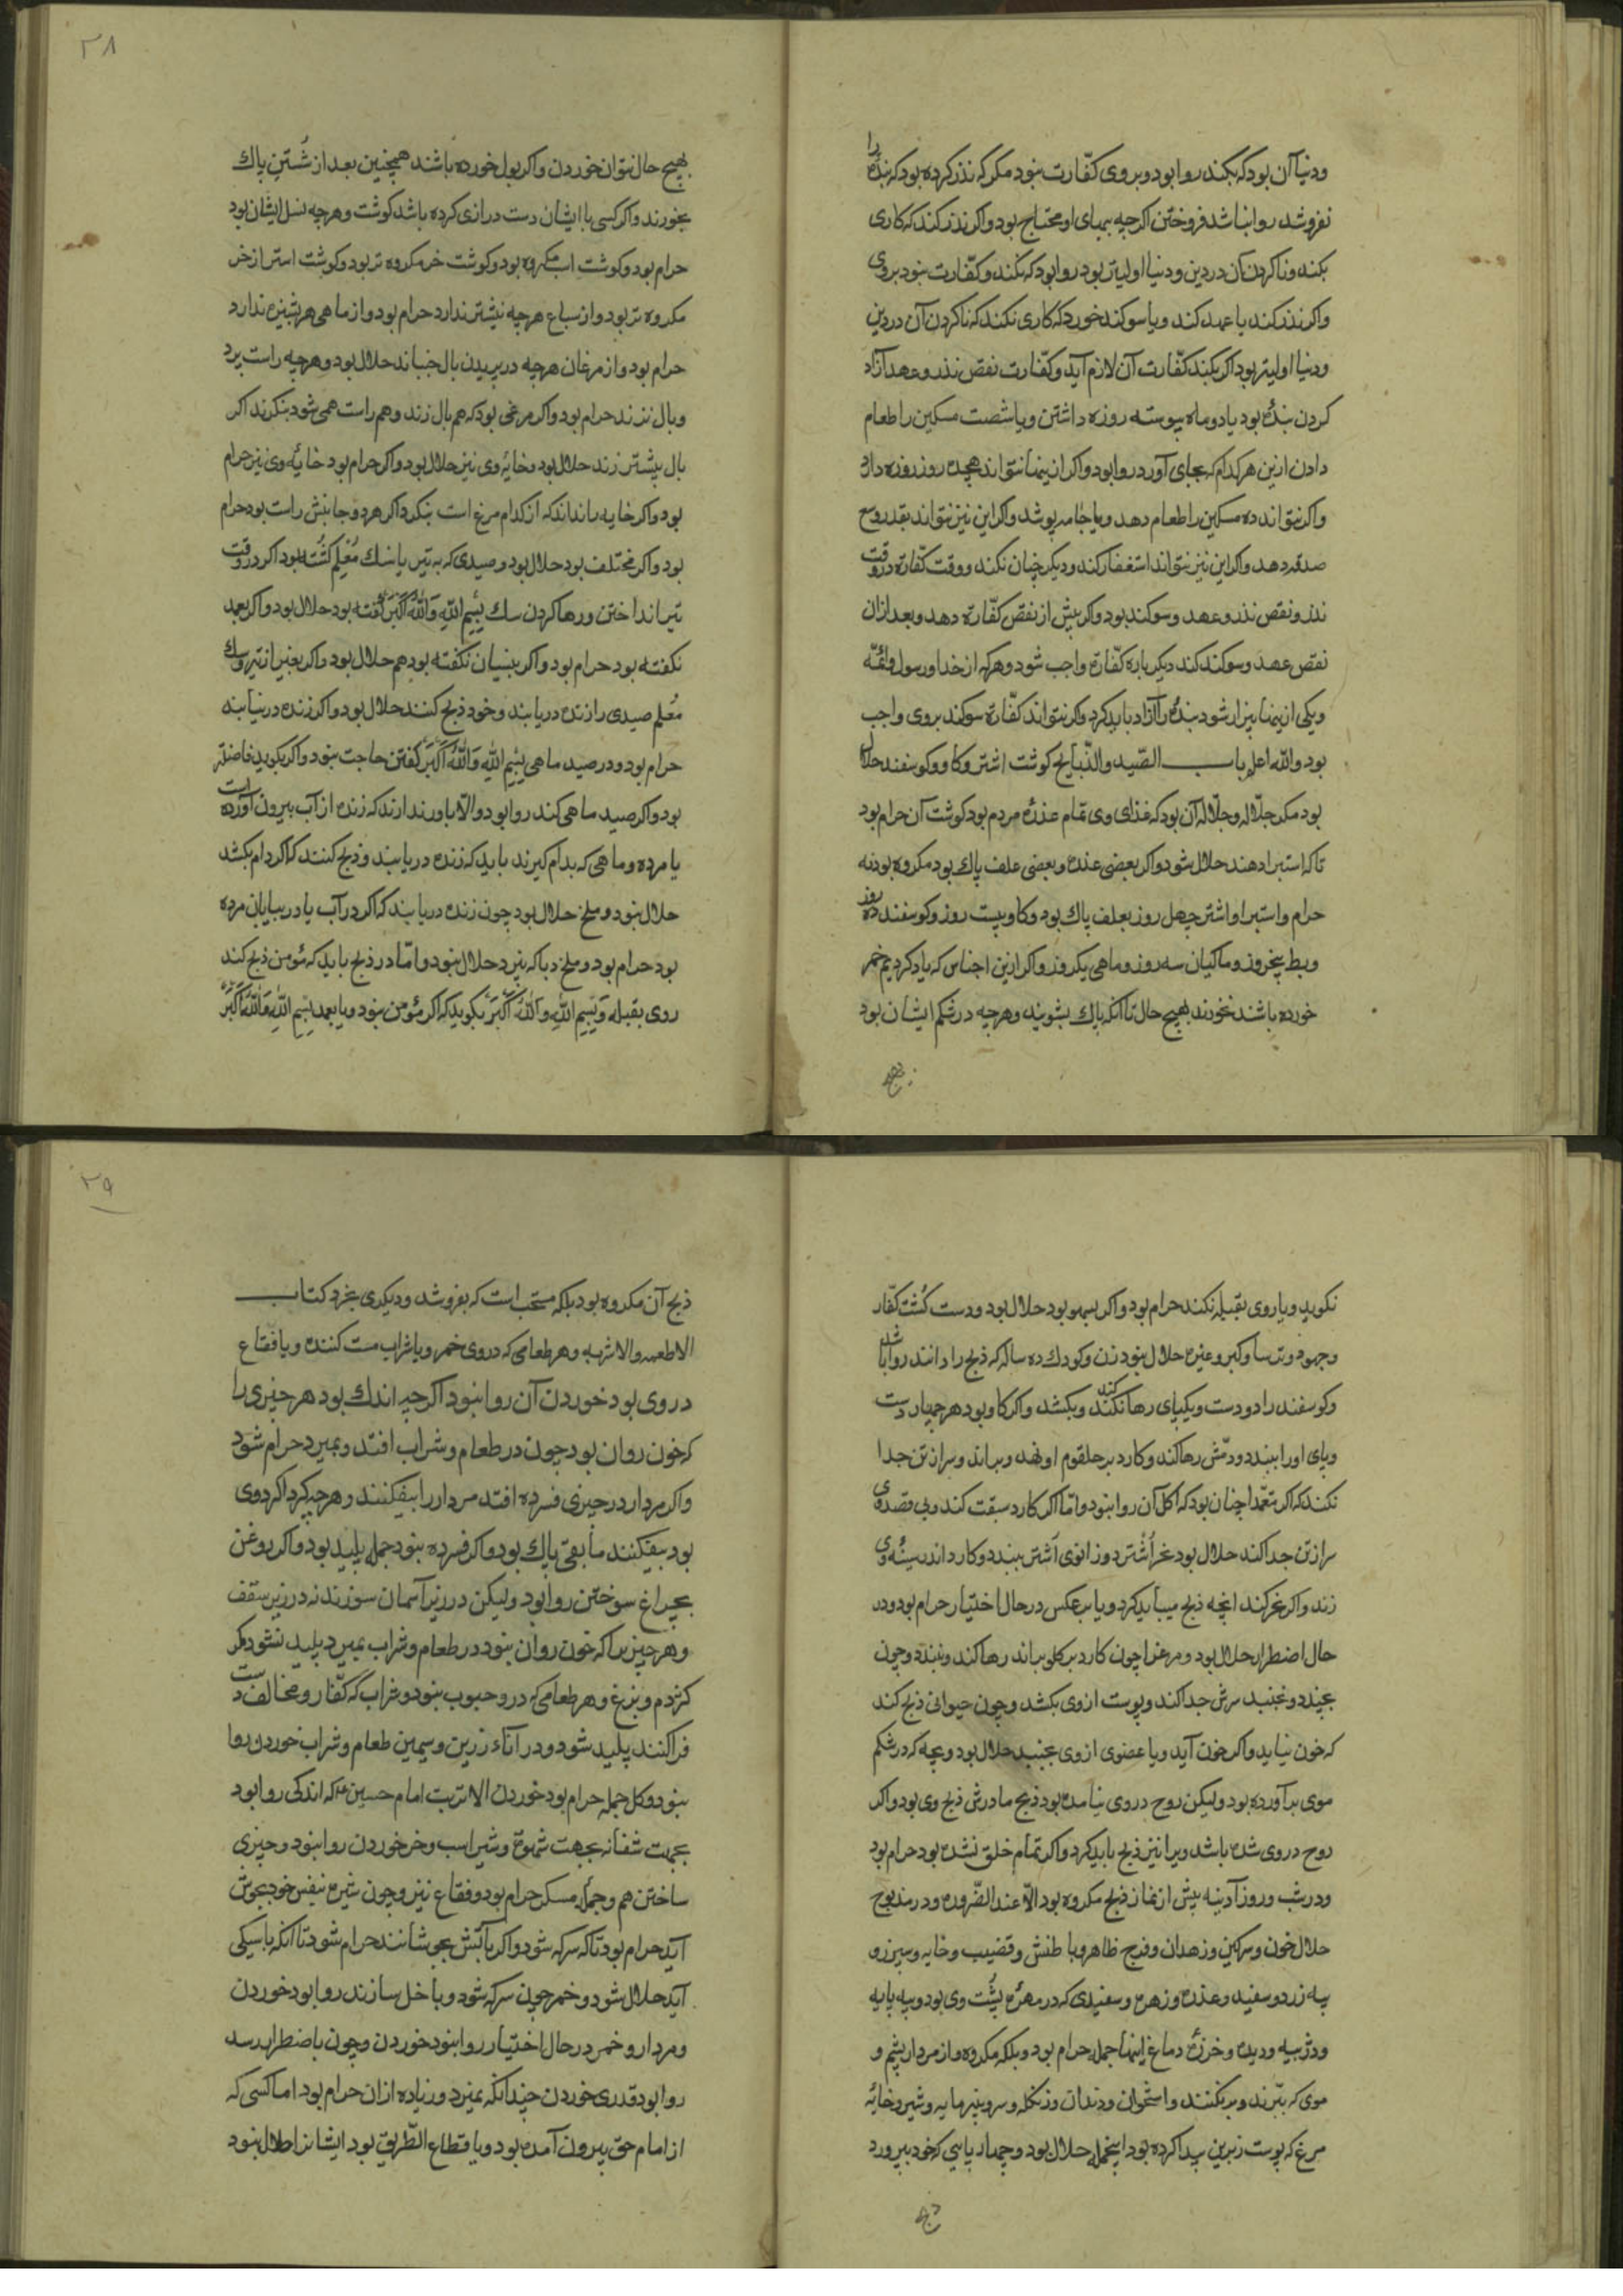 ودنیا آن بود که بکند روا بود و بر وی کفّارت نبود مکر که نذر کرده بود که بندهٔ را
نفروشد روا نباشد فروختن اکرچه ببهای او محتاج بود و اکر نذر کند که کاری
بکند و ناکردن آن در دین و دنیا اولیتر بود روا بود که نکند و کفّارت نبود بروی
واکر نذر کند یا عهد کند و یا سوکند خورد که کاری نکند که ناکردن آن در دین
ودنیا اولیتر بود اکر بکند کفّارت آن لازم آید و کفّارت نقض نذر و عهد آزاد
کردن بندهٔ بود یا دو ماه پیوسته روزه داشتن و یا شصت مسکین را طعام
دادن ازین هر کدام که بجای آورد روا بود و اکر ازینها نتواند هجده روز روزه دارد
واکر نتواند ده مسکین را طعام دهد و یا جامه پوشد و اکر این نیز نتواند بقدر وسع
صدقه دهد و اکر این نیز نتواند استغفار کند و دیکر چنان نکند و وقت کفّاره در وقت
نذر و نقض نذر و عهد و سوکند بود و اکر پیش از نقض کفّاره دهد و بعد ازان
نقض عهد و سوکند کند دیکر باره کفّاره واجب شود و هر که از خدا و رسول و ائمّه
و یکی ازینها بیزار شود بندهٔ را آزاد باید کرد و اکر نتواند کفّارهٔ سوکند بروی واجب
بود والله اعلم باب الصّید والذّبایح کوشت اشتر و کاو و کوسفند حلال
بود مکر جلّاله و جلّاله آن بود که غذای وی تمام عذرهٔ مردم بود کوشت آن حرام بود
تا که استبرا دهند حلال شود و اکر بعضی عذره و بعضی علف پاك بود مکروه بود نه
حرام و استبراء اشتر چهل روز بعلف پاك بود و کاو بیست روز و کوسفند ده روز
وبط پنج روز و ماکیان سه روز و ماهی یکروز و اکر ازین اجناس که یاد کردیم خمر
خورده باشند نخورند بهیج حال تا آنکه پاك بشویند و هرچه در شکم ایشان بود
بهیج
۲۸
بهیج حال نتوان خوردن و اکر بول خورده باشند همچنین بعد از شُستن پاك
بخورند و اکر کسی با ایشان دست درازی کرده باشد کوشت و هرچه نسل ایشان بود
حرام بود و کوشت اسب مکروه بود و کوشت خر مکروه تر بود و کوشت استر از خر
مکروه تر بود و از سباع هرچه نیشتر ندارد حرام بود و از ماهی هر پشیزه ندارد
حرام بود و از مرغان هرچه در پریدن بال جنباند حلال بود و هرچه راست پرد
و بال نزند حرام بود و اکر مرغی بود که هم بال زند و هم راست همی شود بنکرند اکر
بال بیشتر زند حلال بود و خایهٔ وی نیز حلال بود و اکر حرام بود خایهٔ وی نیز حرام
بود و اکر خایه را نداند که از کدام مرغ است بنکرد اکر هردو جانبش راست بود حرام
بود و اکر مختلف بود حلال بود و صیدی که به تیر یا سك مُعَلّم کُشته بود اکر در وقت
تیر انداختن و رها کردن سك بِسْمِ اللهِ وَاللهُ اَکْبَرُ گفته بود حلال بود و اکر بعمد
نکفته بود حرام بود و اکر بنسیان نکفته بود هم حلال بود و اکر بغیر از تیر و سك
مُعلّم صیدی را زنده دریابند و خود ذبح کنند حلال بود و اکر زنده درنیابند
حرام بود و در صید ماهی بِسْمِ اللهِ وَاللهُ اَکْبَرُ کفتن حاجت نبود و اکر بکوید فاضلتر
بود و اکر صید ماهی کند روا بود والّا باور ندارند که زنده از آب بیرون آورده است
یا مرده و ماهی که بدام کیرند باید که زنده دریابند و ذبح کنند که اکر در دام بکشد
حلال نبود و ملخ حلال بود چون زنده دریابند که اکر در آب یا در بیابان مرده
بود حرام بود و ملخ دبا که نپرد حلال نبود و امّا در ذبح باید که مؤمن ذبح کند
روی بقبله و بِسْمِ اللهِ وَاللهُ اَکْبَرُ بکوید که اکر مؤمن نبود و یا بعمد بِسْمِ اللهِ وَاللهُ اَکْبَرُ
نکوید و یا روی بقبله نکند حرام بود و اکر بسهو بود حلال بود و دست کُشت کفّار
وجهود و ترسا و کبر و غیره حلال نبود زن و کودك ده ساله که ذبح را دانند روا باشد
وکوسفند را دو دست و یکپای رها نکند کند و بکشد و اکر کاو بود هر چهار دست
و پای او را ببندد و دمّش رها کند و کارد بر حلقوم او نهد و براند و سر از تن جدا
نکند که اکر متعمّدا چنان بود که اکل آن روا نبود و امّا اکر کارد سبقت کند و بی قصد وی
سر از تن جدا کند حلال بود نحر اُشتر دو زانوی اُشتر ببندد و کارد اندر سینهٔ وی
زند و اکر نحر کند آنچه ذبح میباید کرد و یا برعکس در حال اختیار حرام بود و در
حال اضطرار حلال بود و مرغ را چون کارد بر کلو براند رها کند و نبندد و چون
بمیرد و نجنبد سرش جدا کند و پوست از وی بکشد و چون حیوانی ذبح کند
که خون نیاید و اکر خون آید و یا عضوی از وی بجنبد حلال بود و بچه که در شکم
موی برآورده بود ولیکن روح در وی نیامده بود ذبح مادرش ذبح وی بود و اکر
روح در وی شده باشد ویرا نیز ذبح باید کرد و اکر تمام خلق نشده بود حرام بود
و در شب و روز آدینه پیش از نماز ذبح مکروه بود الّا عند الضّروره و در مذبوح
حلال خون و سرکین و زهدان و فرج ظاهر و باطنش و قضیب و خایه و سپرز و
پیه زرد و سفید و غدّه و زهره و سفیدی که در مهرهٔ پُشت وی بود و پیه پایه
ودنبه و دیده و خرزهٔ دماغ اینها جمله حرام بود و بلکه مکروه و از مردار پشم و
موی که ببّرند و برنکنند و استخوان و دندان و زنکله و سرو و پنیرمایه و شیر و خایهٔ
مرغ که پوست زبرین پیدا کرده بود اینجمله حلال بود و چهارپایی که خود بپرورد
ذبح
۲۹
ذبح آن مکروه بود بلکه مستحب است که بفروشد و دیکری بخرد کتاب
الاطعمه والاشربه و هر طعامی که در وی خمر و یا شراب مست کننده و یا فقاع
در وی بود خوردن آن روا نبود اکرچه اندك بود هر چیزی را
که خون روان بود چون در طعام و شراب افتد و بمیرد حرام شود
واکر مردار در چیزی فسرده افتد مردار را بیفکنند و هرچه کرداکرد وی
بود بیفکنند ما بقی پاك بود و اکر فسرده نبود جمله پلید بود و اکر روغن
بچراغ سوختن روا بود ولیکن در زیر آسمان سوزند نه در زیر سقف
و هر چیزیرا که خون روان نبود در طعام و شراب بمیرد پلید نشود مکر
کژدم و بزغ و هر طعامی که در و حبوب نبود و شراب که کفّار و مخالف دست
فرا کنند پلید شود و در آناء زرین و سیمین طعام و شراب خوردن روا
نبود و کل جمله حرام بود خوردن الا تربت امام حسین که اندکی روا بود
بجهت شفا نه بجهت شهوة و شیر اسب و خر خوردن روا نبود و چیزی
ساختن هم و جملهٔ مسکر حرام بود و فقاع نیز و چون شیره بنفس خود بجوش
آید حرام بود تا که سرکه شود و اکر بآتش بجوشانند حرام شود تا آنکه باسیکی
آید حلال شود و خمر چون سرکه شود و با خل سازند روا بود خوردن
ومردار و خمر در حال اختیار روا نبود خوردن و چون باضطرار رسد
روا بود قدری خوردن چندانکه نمیرد و زیاده ازان حرام بود اما کسی که
از امام حق بیرون آمده بود و یا قطاع الطّریق بود ایشانرا حلال نبود